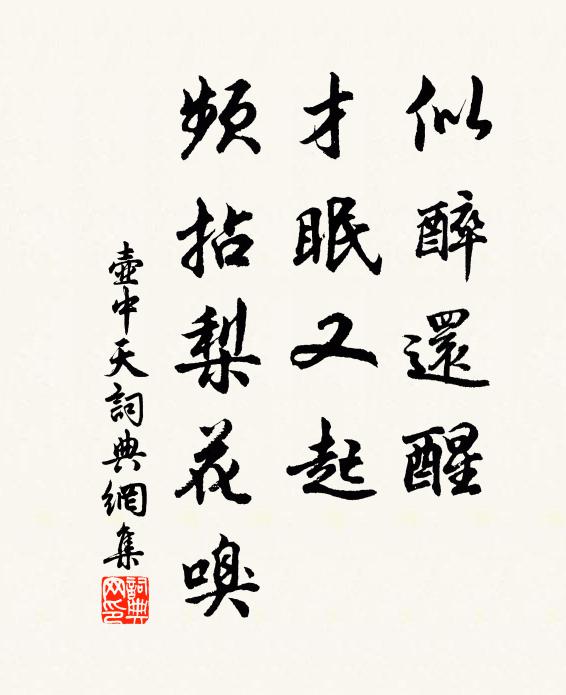 似醉還醒
才眠又起
頻拈梨花嗅
壺中天詞典網集
詞典
网印